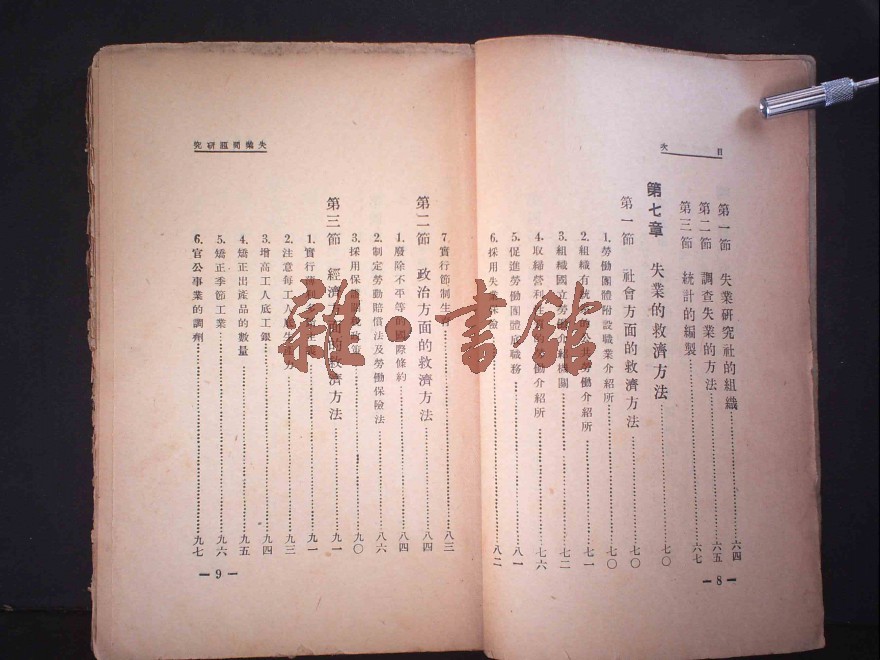 目次
第一節 失業研究社的組織 六四
第二節 調查失業的方法 六五
第三節 統計的編製 六七
第七章 失業的救濟方法 七〇
第一節 社會方面的救濟方法 七〇
1. 勞働團體附設職業介紹所 七〇
2. 組織有 的 共勞働介紹所 七一
3. 組織國立勞働介紹機關 七二
4. 取締營利性 的勞働介紹所 七六
5. 促進勞働團體底職務 八一
6. 採用失業保險 八二
—8—
失業問題研究
7. 實行節制生 八三
第二節 政治方面的救濟方法 八四
1. 廢除不平等的國際條約 八四
2. 制定勞動賠償法及勞働保險法 八六
3. 採用保護關稅政策 九〇
第三節 經濟方面的救濟方法 九一
1. 實行薄利多 主 九一
2. 注意每工人底生 力 九三
3. 增高工人底工銀 九四
4. 矯正出產品的數量 九五
5. 矯正季節工業 九六
6. 官公事業的調劑 九七
—9—
雜·書館